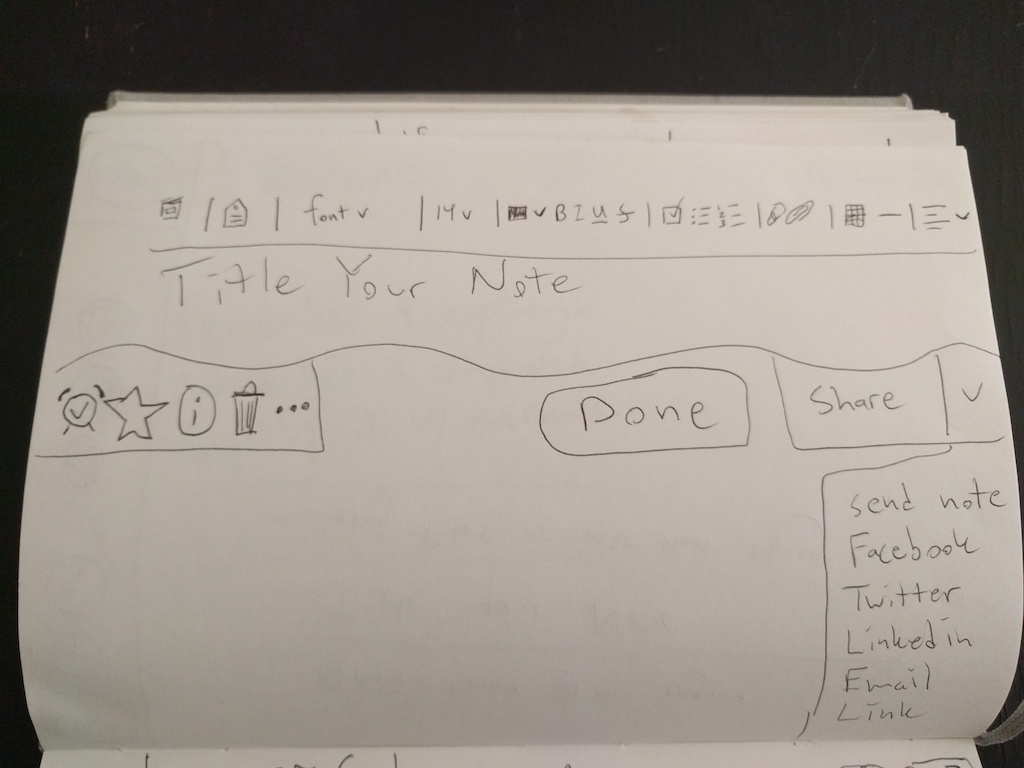 font 14 B I U S
Title Your Note
i ... Done Share
send note
Facebook
Twitter
Linkedin
Email
Link